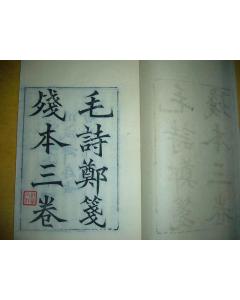 毛詩鄭箋
殘本三卷